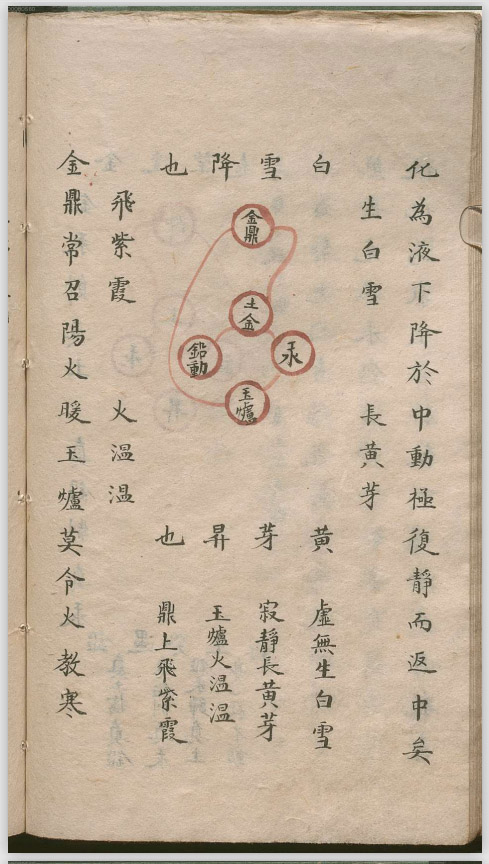 化為液下降於中動極復靜而返中矣
生白雪
長黃芽
白雪降也
金鼎
土金
鉛動
汞
玉爐
黃芽昇也
虛無生白雪
寂靜長黃芽
玉爐火溫溫
鼎上飛紫霞
飛紫霞
火溫溫
金鼎常召陽火暖玉爐莫令火教寒